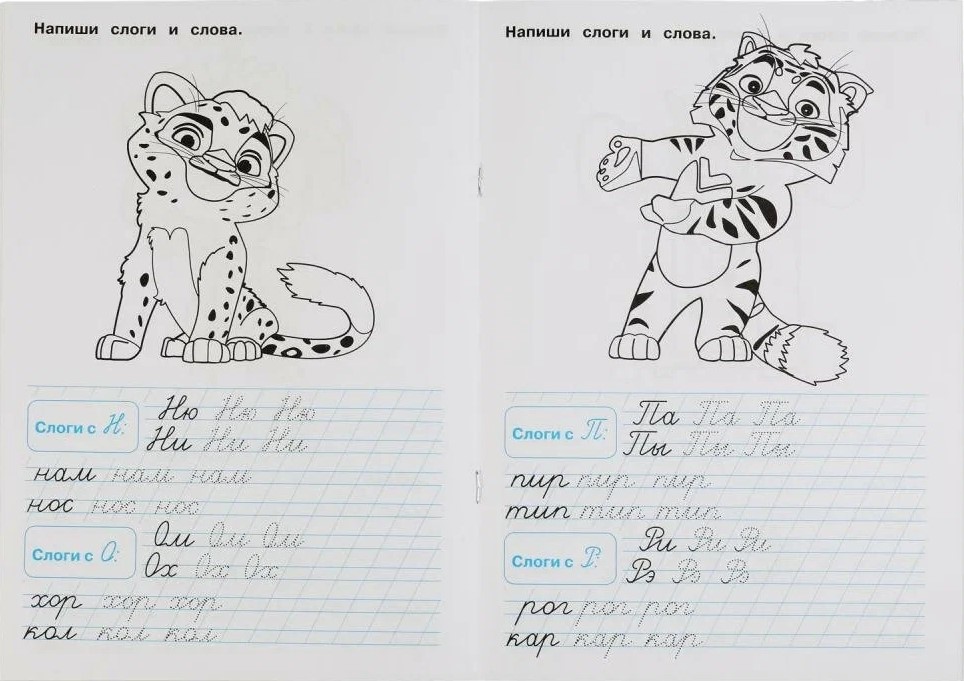 Напиши слоги и слова.
Слоги с Н:
Ню Ню Ню
Ни Ни Ни
нам нам нам
нос нос нос
Слоги с О:
Ом Ом Ом
Ох Ох Ох
хор хор хор
кол кол кол
Напиши слоги и слова.
Слоги с П:
Па Па Па
Пы Пы Пы
пир пир пир
тип тип тип
Слоги с Р:
Ри Ри Ри
Рэ Рэ Рэ
рог рог рог
кар кар кар